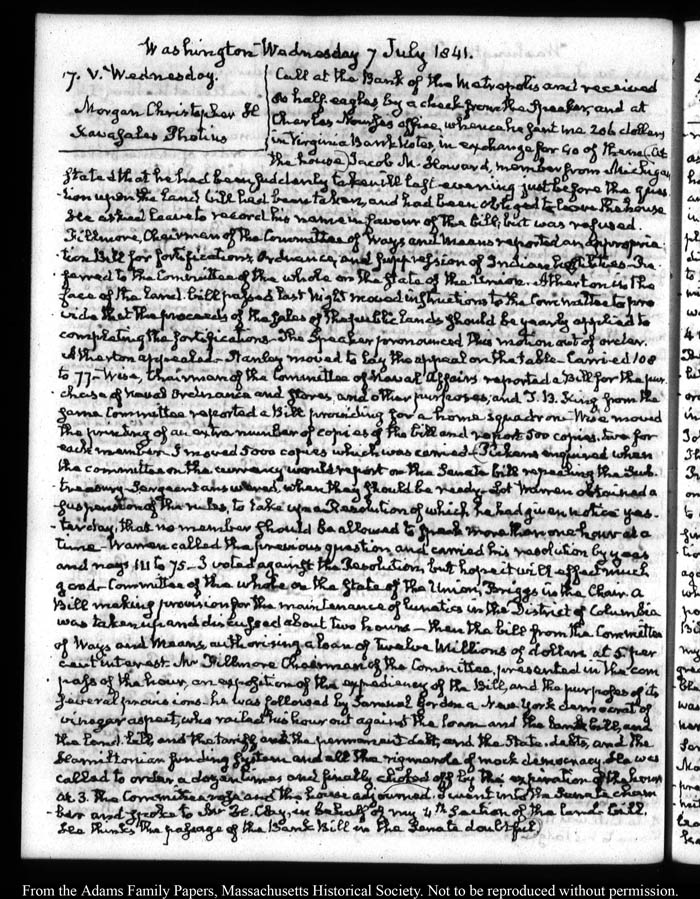 Washington Wednesday 7 July 1841.
7. V. Wednesday.
Morgan Christopher H
Kavasales Photius
Call at the Bank of the Metropolis and received
80 half-eagles by a check from the Speaker, and at
Charles office, whence he sent me 206 dollars
in Virginia Bank Notes, in exchange for 40 of them. At
the house, Jacob M. Howard, member from Michigan
stated that he had been suddenly taken ill last evening just before the ques-
tion upon the Land bill had been taken, and had been obliged to leave the house
He asked leave to record his name in favour of the bill; but was refused.
Fillmore, Chairman of the Committee of Ways and Means reported an appropria-
tion Bill for fortifications, Ordnance, and suppression of Indian hostilities. Re-
ferred to the Committee of the whole on the state of the Union. Atherton in the
face of the Land bill passed last night moved instructions to the Committee to pro-
vide that the proceeds of the sales of the public lands should be yearly applied to
completing the fortifications. The Speaker pronounced this motion out of order.
Atherton appealed. Stanley moved to lay the appeal on the table. Carried 108
to 77. Wise, Chairman of the Committee of Naval Affairs reported a Bill for the pur-
chase of Naval Ordnance and stores, and other purposes, and T. B. King from the
same Committee reported a Bill providing for a home squadron. Wise moved
the printing of an extra number of copies of the bill and report 500 copies, two for
each member. I moved 5000 copies which was carried. Pickens enquired when
the committee on the currency would report on the Senate bill repealing the Sub-
treasury. Sergeant answered, when they should be ready. Lot Warren obtained a
suspension of the rules, to take up a Resolution of which he had given notice yes-
terday, that no member should be allowed to speak more than one hour at a
time. Warren called the previous question, and carried his resolution by yeas
and nays 111 to 75. I voted against the Resolution, but hope it will effect much
good. Committee of the whole on the State of the Union, Briggs in the Chair. A
Bill making provision for the maintenance of lunatics in the District of Columbia
was taken up and discussed about two hours – then the bill from the Committee
of Ways and Means, authorising a loan of Twelve Millions of dollars at 5 per
cent interest. Mr Fillmore Chairman of the Committee, presented in the com-
pass of the hour, an exposition of the expediency of the Bill, and the purposes of its
several provisions. he was followed by Samuel Gordon a New York democrat of
vinegar aspect, who railed his hour out against the loan and the bank bill, and
the land bill and the tariff and the permanent debt, and the State debts, and the
Hamiltonian funding system and all the rigmarole of mock democracy. He was
called to order a dozen times and finally choked off by the expiration of the hour
At 3. the Committee rose and the house adjourned. I went into the Senate cham-
ber and spoke to Mr H. Clay, in behalf of my 4th section of the land bill
He thinks the passage of the Bank Bill in the Senate doubtful
From the Adams Family Papers, Massachusetts Historical Society. Not to be reproduced without permission.